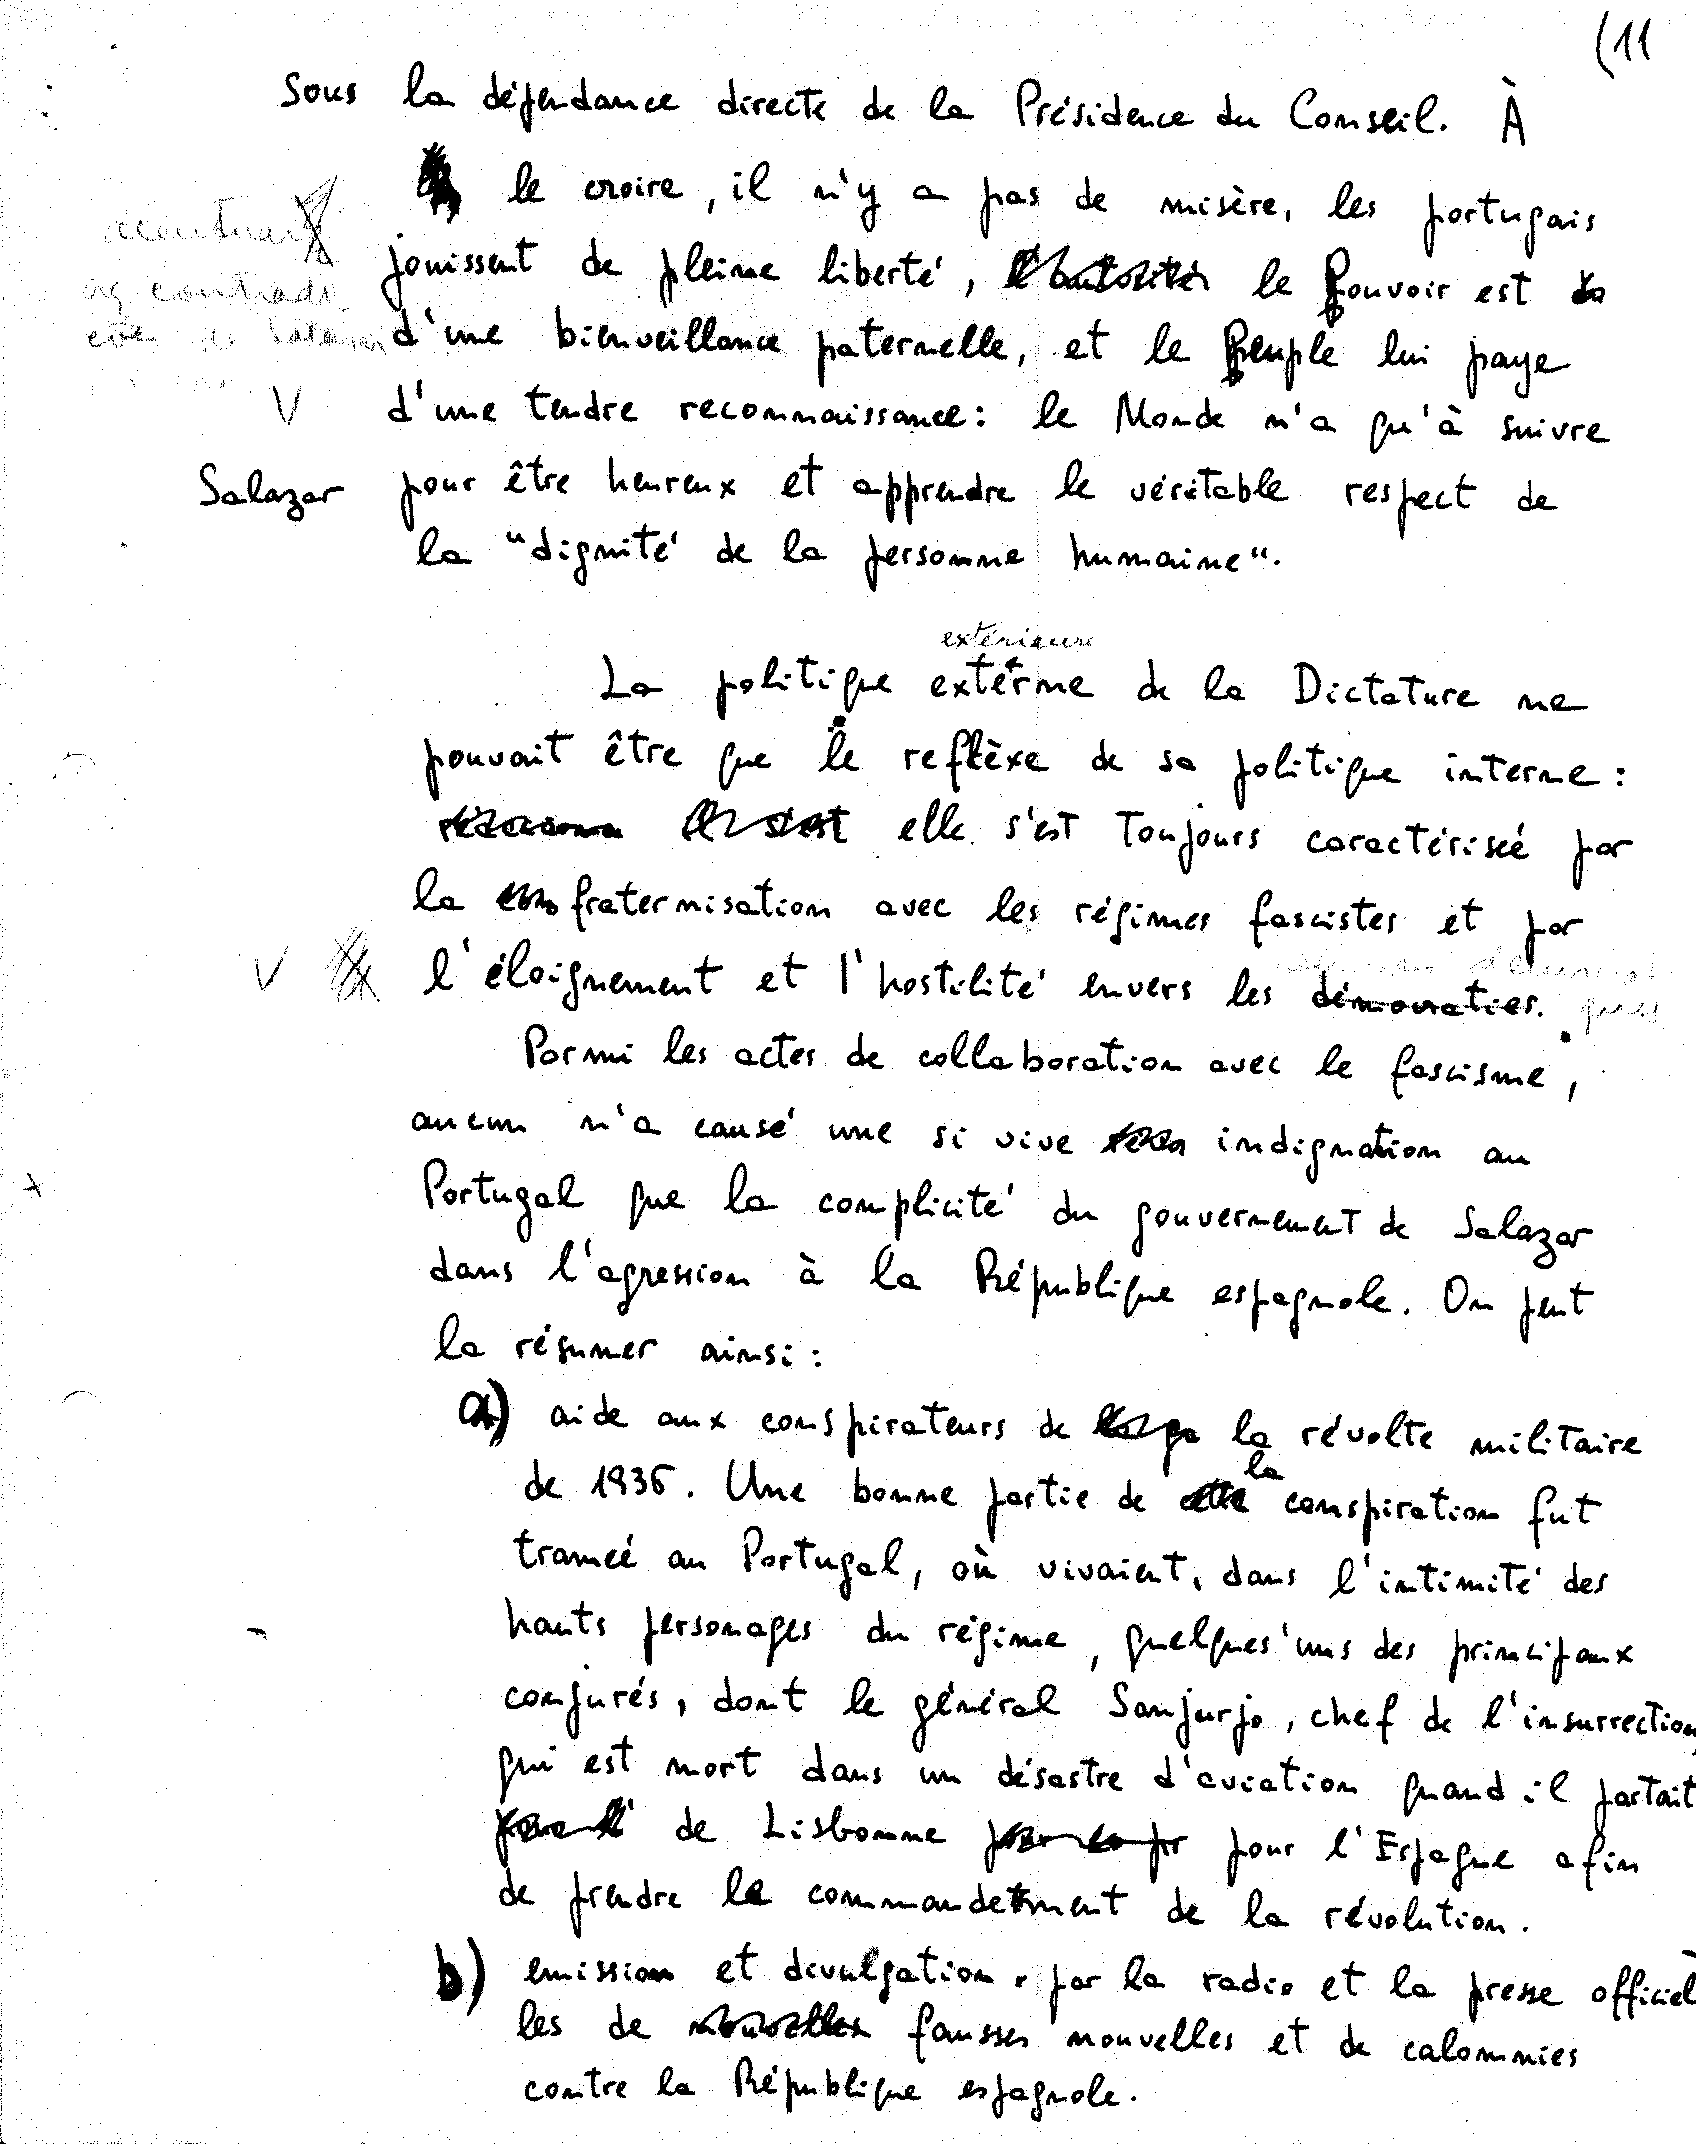 (11
sous la dépendance directe de la Présidence du Conseil. À
le croire, il n'y a pas de misère, les portugais
jouissent de pleine liberté, le Pouvoir est
d'une bienveillance paternelle, et le Peuple lui paye
V d'une tendre reconnaissance: le Monde n'a qu'à suivre
Salazar pour être heureux et apprendre le véritable respect de
la "dignité de la personne humaine".
extérieure
La politique externe de la Dictature ne
pouvait être que le reflèxe de sa politique interne:
elle s'est toujours caractérisée par
la fraternisation avec les régimes fascistes et par
V l'éloignement et l'hostilité envers les démocraties.
Parmi les actes de collaboration avec le fascisme,
aucun n'a causé une si vive indignation au
Portugal que la complicité du gouvernement de Salazar
dans l'agression à la République espagnole. On peut
la résumer ainsi:
a) aide aux conspirateurs de la révolte militaire
de 1936. Une bonne partie de la conspiration fut
tramée au Portugal, où vivaient, dans l'intimité des
hauts personages du régime, quelques'uns des principaux
conjurés, dont le général Sanjurjo, chef de l'insurrection,
qui est mort dans un désastre d'aviation quand il partait
de Lisbonne pour l'Espagne afin
de prendre le commandement de la révolution.
b) emission et divulgation, par la radio et la presse officiel-
les de fausses nouvelles et de calomnies
contre la République espagnole.